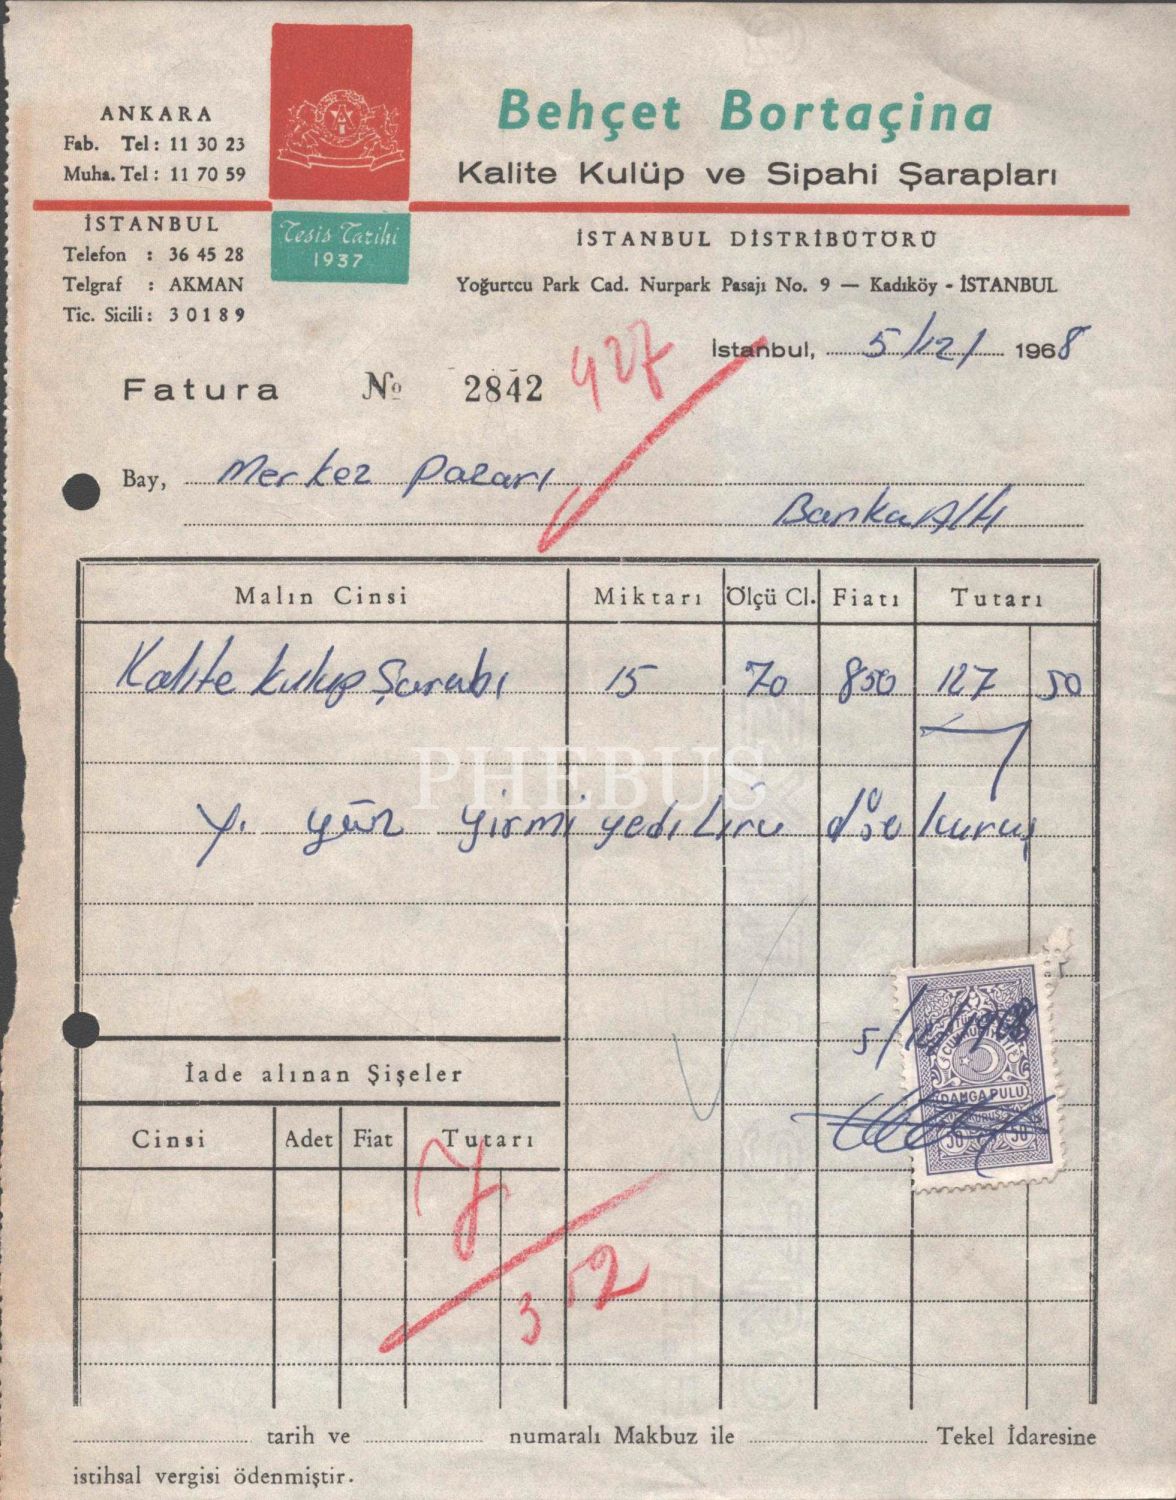 ANKARA
Fab. Tel : 11 30 23
Muha. Tel : 11 70 59
İSTANBUL
Telefon : 36 45 28
Telgraf : AKMAN
Tic. Sicili : 30189
Tesis Tarihi
1937
Behçet Bortaçina
Kalite Kulüp ve Sipahi Şarapları
İSTANBUL DİSTRİBÜTÖRÜ
Yoğurtcu Park Cad. Nurpark Pasajı No. 9 — Kadıköy - İSTANBUL
İstanbul, 5/12/ 1968
427
Fatura № 2842
Bay, Merkez Pazarı
Banka Altı
Malın Cinsi Miktarı Ölçü Cl. Fiatı Tutarı
Kalite kulüp Şarabı 15 70 850 127 50
PHEBUS
Y. yüz yirmi yedi Lira kuruş
5/12/1968
TÜRKİYE
CUMHURİYETİ
DAMGA PULU
50 50
İade alınan Şişeler
Cinsi Adet Fiat Tutarı
7
352
tarih ve numaralı Makbuz ile Tekel İdaresine
istihsal vergisi ödenmiştir.